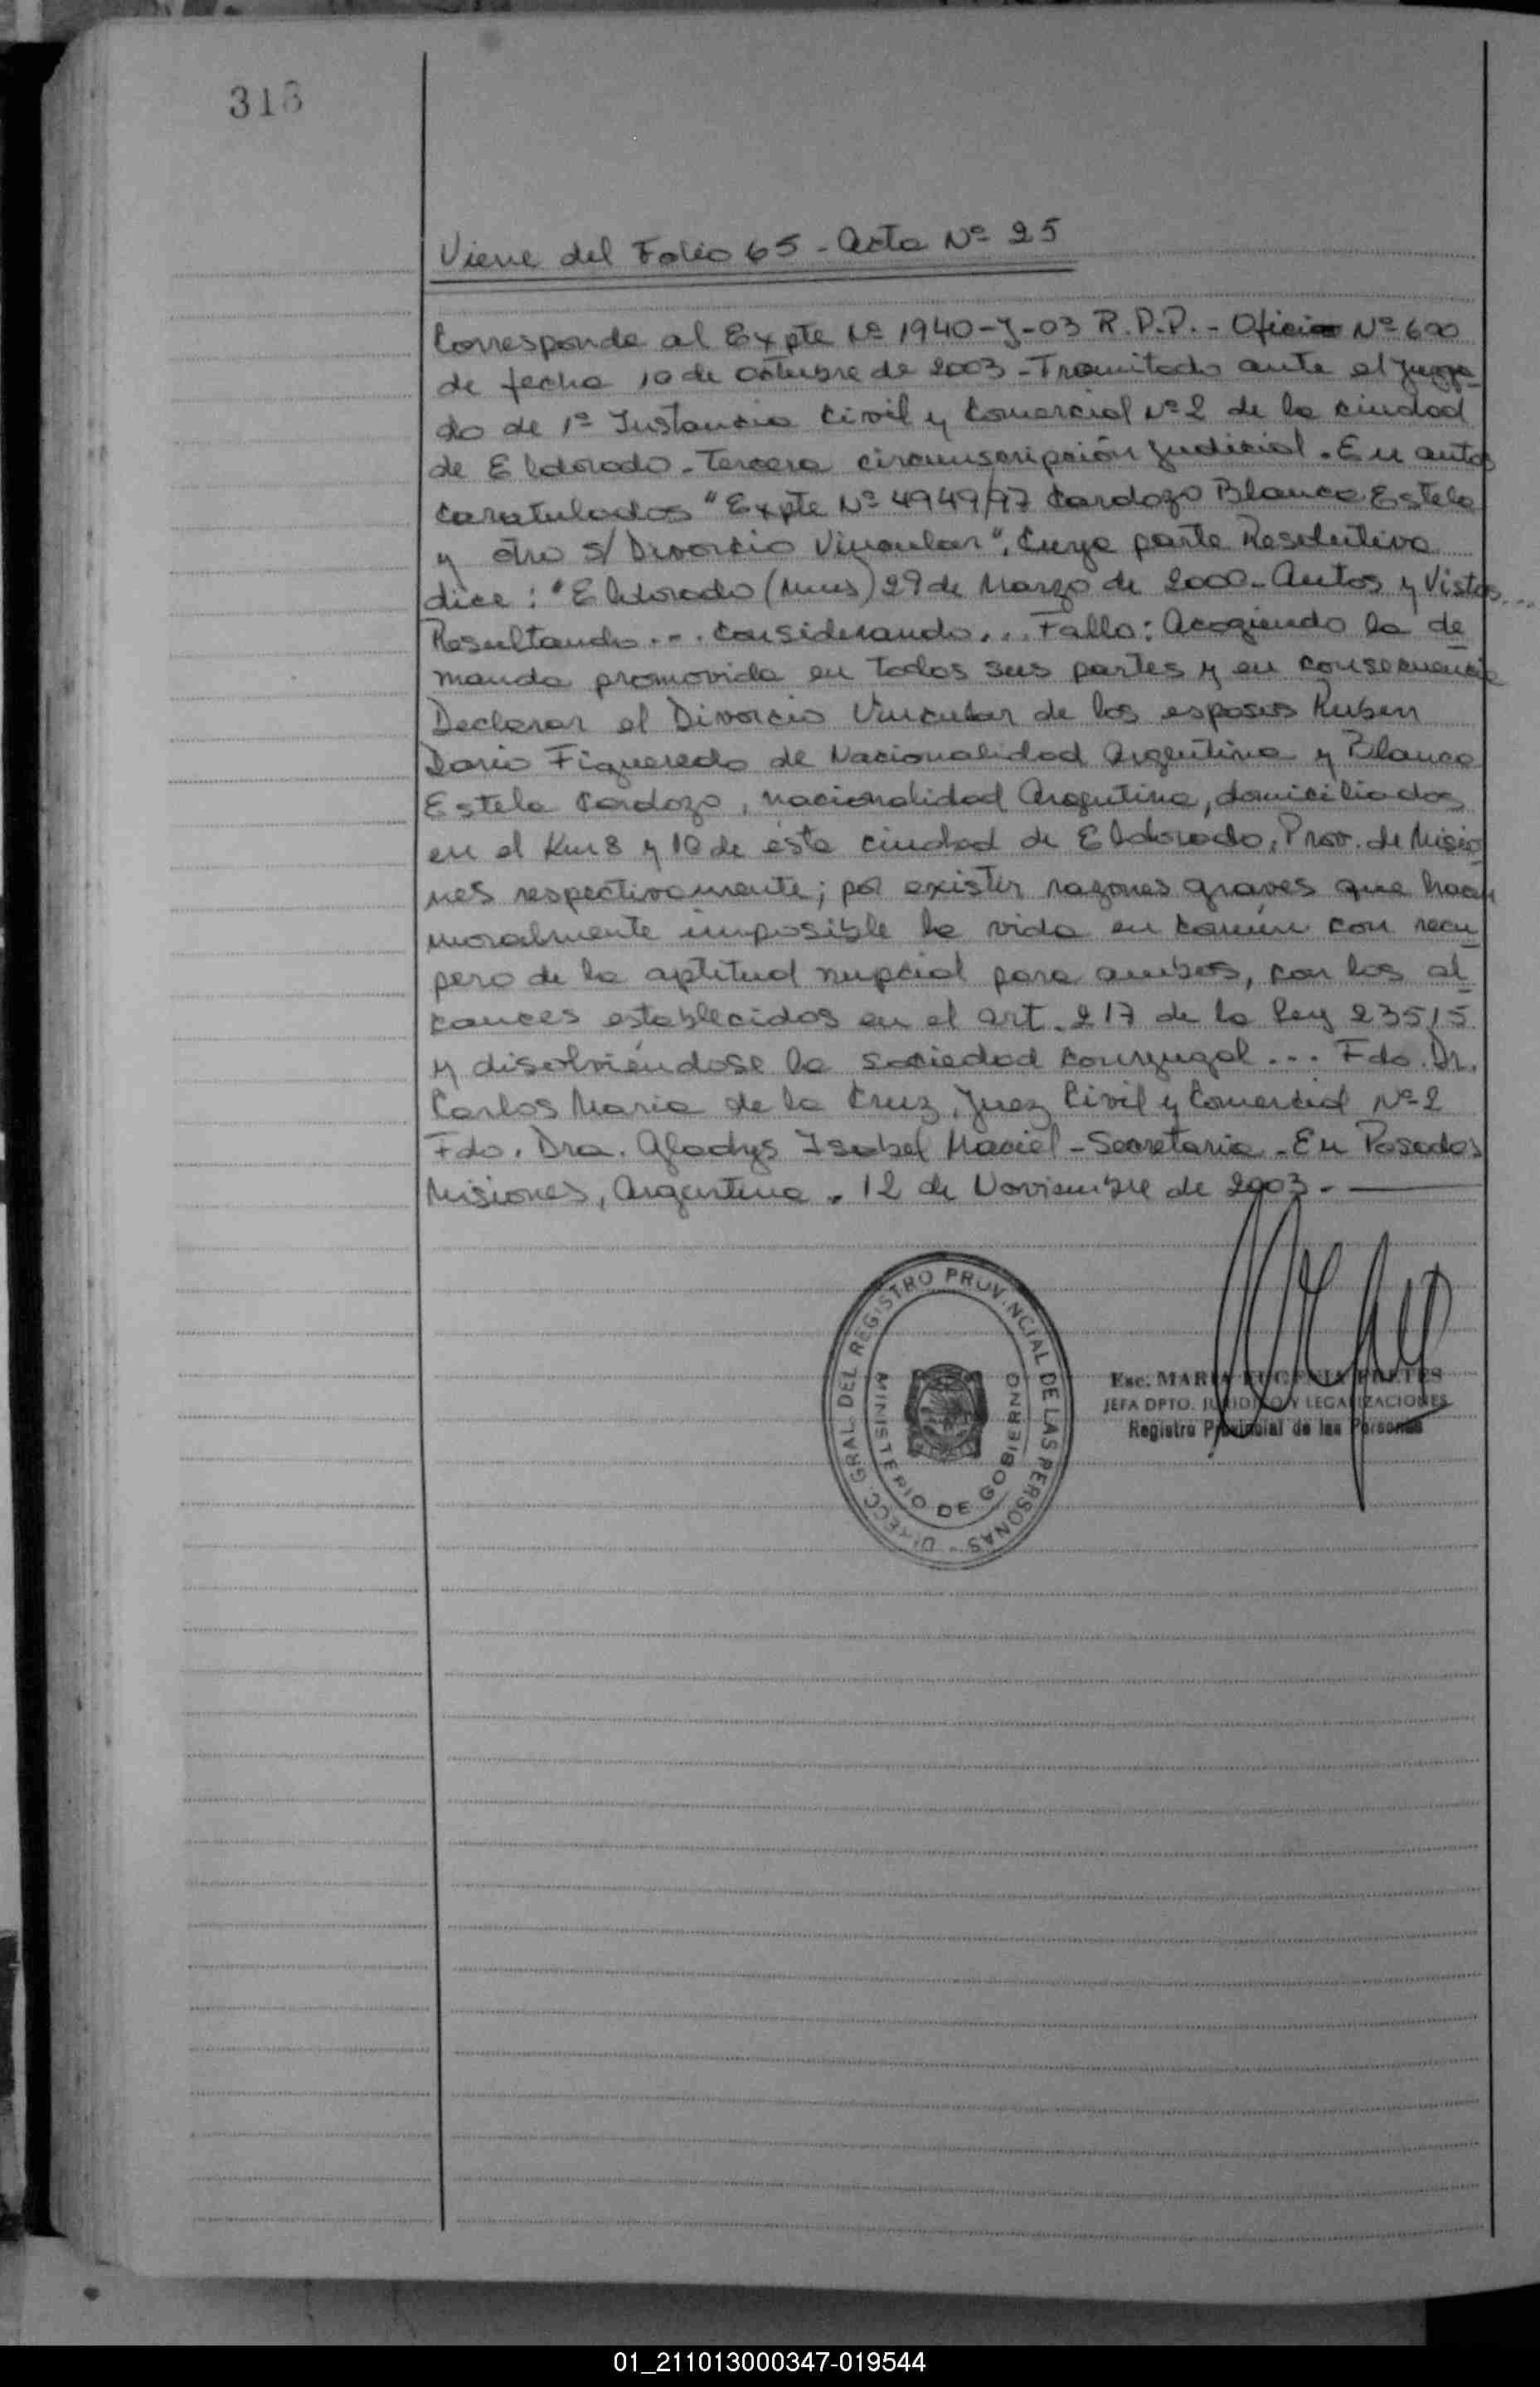 318
Viene del Folio 65 - Acta Nº 25
Corresponde al Expte Nº 1940-J-03 R.P.P. - Oficio Nº 600
de fecha 10 de octubre de 2003 - Tramitado ante el Juzga
do de 1ª Instancia Civil y Comercial Nº 2 de la ciudad
de Eldorado - Tercera circunscripción Judicial. En autos
caratulados "Expte Nº 4949/97 Cardozo Blanca Estela
y otro S/ Divorcio Vincular", Cuya parte Resolutiva
dice: "Eldorado (Mnes) 29 de Marzo de 2000 - Autos y Vistos...
Resultando... Considerando... Fallo: Acogiendo la de
manda promovida en todas sus partes y en consecuencia
Declarar el Divorcio Vincular de los esposos Ruben
Dario Figueredo de Nacionalidad Argentina y Blanca
Estela Cardozo, nacionalidad Argentina, domiciliados
en el Km 8 y 10 de ésta ciudad de Eldorado, Prov. de Misio
nes respectivamente; por existir razones graves que hacen
moralmente imposible la vida en común con recu
pero de la aptitud nupcial para ambos, con los al
cances establecidos en el art. 217 de la ley 23515
y disolviéndose la sociedad conyugal... Fdo. Dr.
Carlos Maria de la Cruz, Juez Civil y Comercial Nº 2
Fdo. Dra. Gladys Isabel Maciel - Secretaria - En Posadas
Misiones, Argentina. 12 de Noviembre de 2003.-
DIRECC. GRAL. DEL REGISTRO PROVINCIAL DE LAS PERSONAS -
MINISTERIO DE GOBIERNO
Esc. MARIA EUGENIA
JEFA DPTO. JURIDICO Y LEGALIZACIONES
Registro Provincial de las Personas
01_211013000347-019544